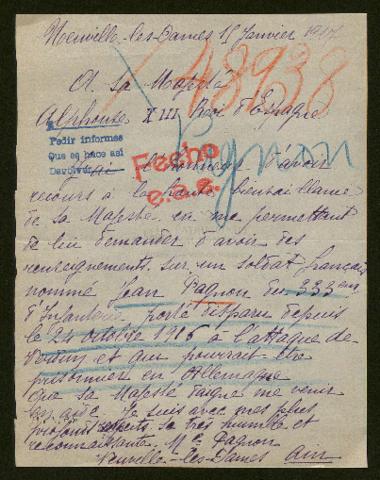 Neuville-les-Dames 15 Janvier 1917
43938
A Sa Majesté
Alphonse XIII Roi d'Espagne
Pedir informes
Que se hace asi
Devolver
Pagnon
Fecho
e.a.e.
l'honneur d'avoir
recours à la haute bienveillance
de sa Majesté en me permettant
de lui demander d'avoir des
renseignements sur un soldat français
nommé Jean Pagnon du 333 eme
d'Infanterie porté disparu depuis
le 24 octobre 1916 à l'attaque de
Verdun et qui pourrait être
prisonnier en Allemagne
Que sa Majesté daigne me venir
en aide Je suis avec mes plus
profonds respects sa très humble et
reconnaissante Me Pagnon
Neuville-les-Dames Ain